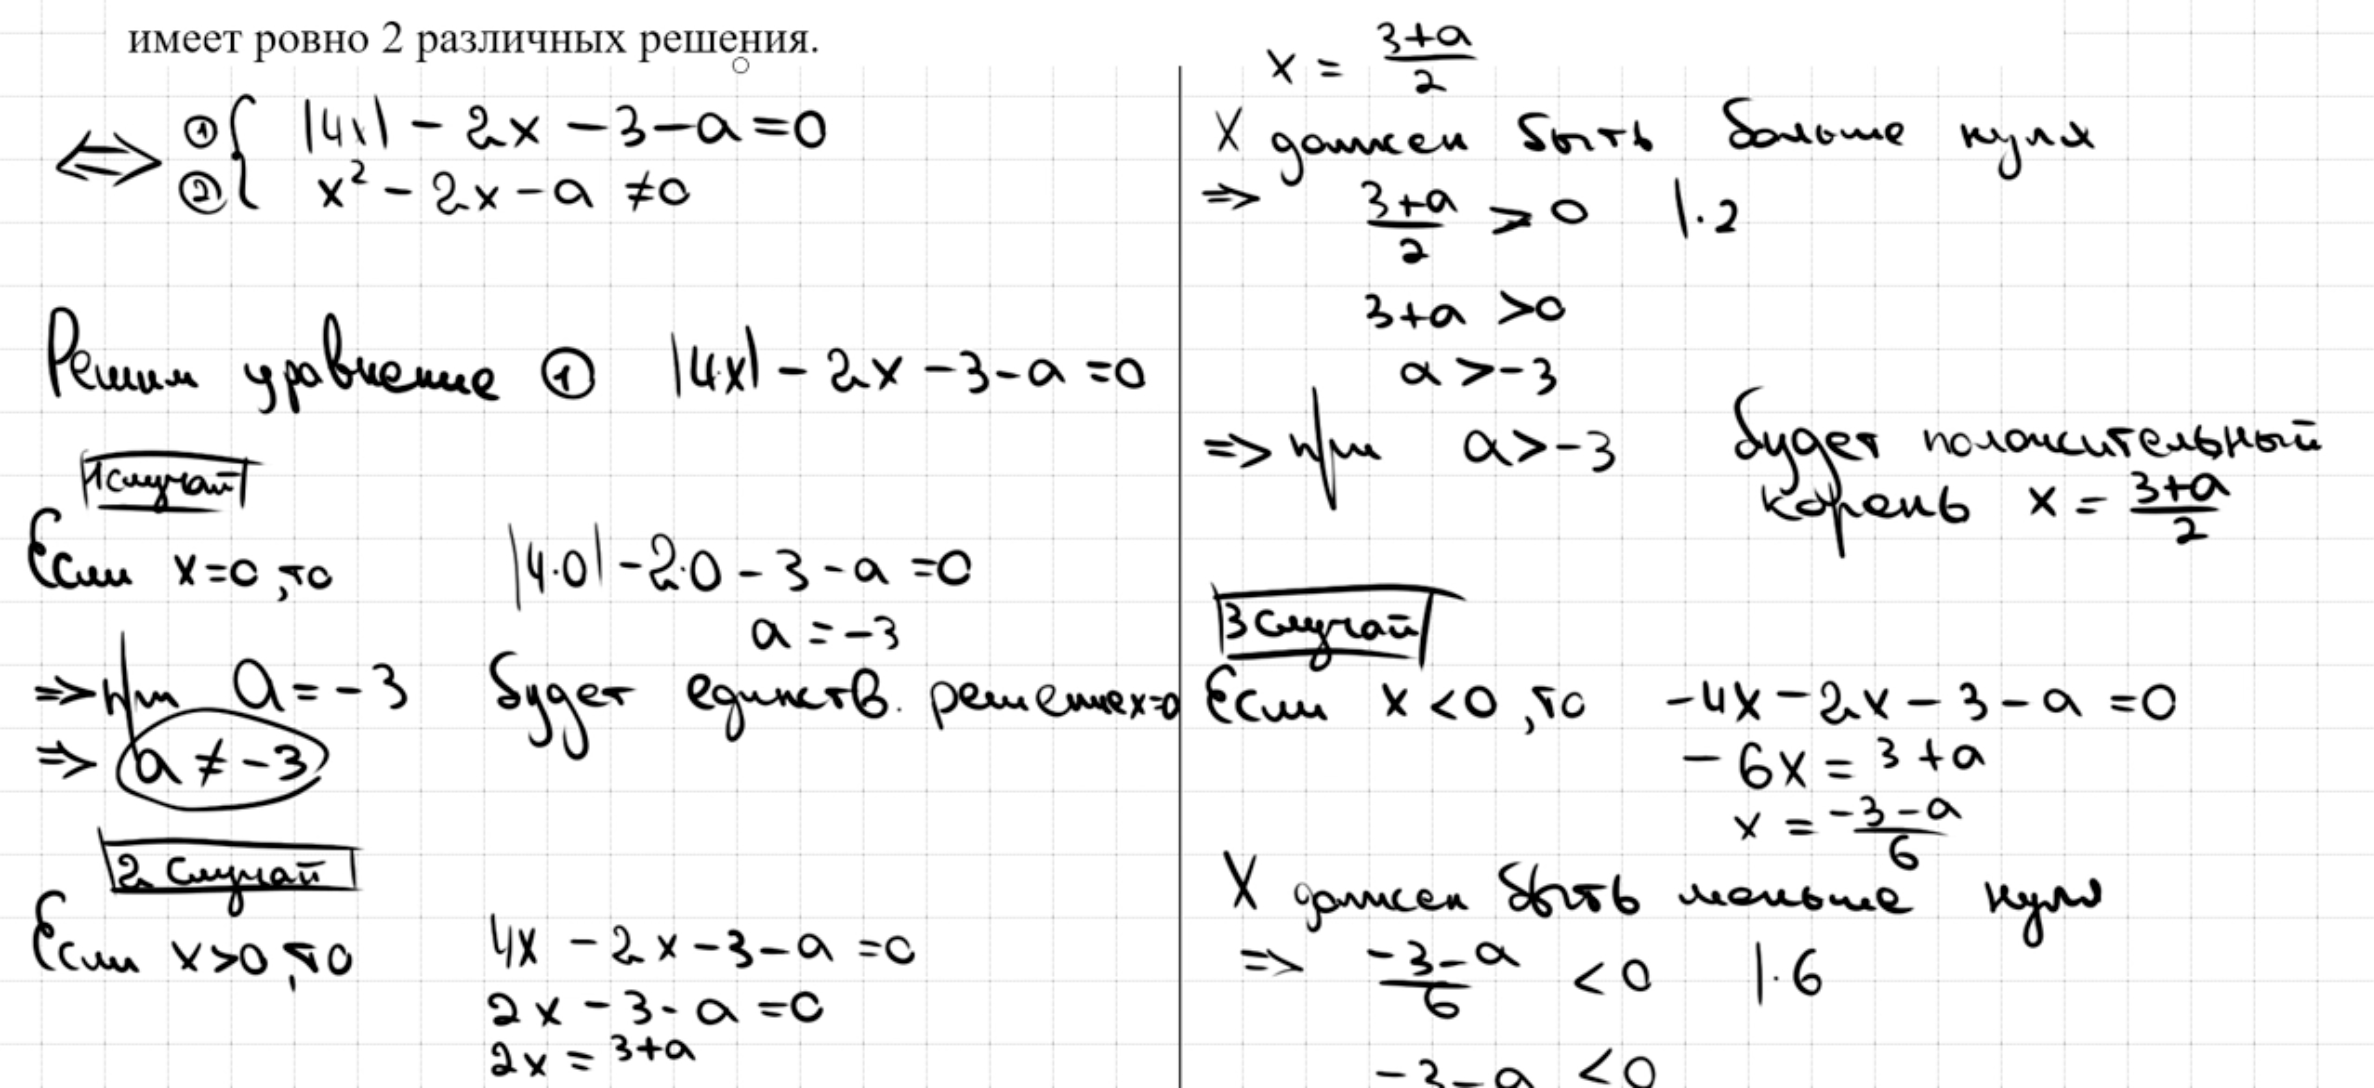 имеет ровно 2 различных решения.
⟺ ① { |4x| - 2x - 3 - a = 0
② { x² - 2x - a ≠ 0
Решим уравнение ① |4x| - 2x - 3 - a = 0
1 случай
Если x = 0, то |4·0| - 2·0 - 3 - a = 0
a = -3
=> при a = -3 будет единств. решение x=0
=> a ≠ -3
2 случай
Если x > 0, то 4x - 2x - 3 - a = 0
2x - 3 - a = 0
2x = 3+a
x = (3+a)/2
X должен быть больше нуля
=> (3+a)/2 > 0 |·2
3+a > 0
a > -3
=> при a > -3 будет положительный
корень x = (3+a)/2
3 случай
Если x < 0, то -4x - 2x - 3 - a = 0
-6x = 3 + a
x = (-3-a)/6
X должен быть меньше нуля
=> (-3-a)/6 < 0 |·6
-3-a < 0